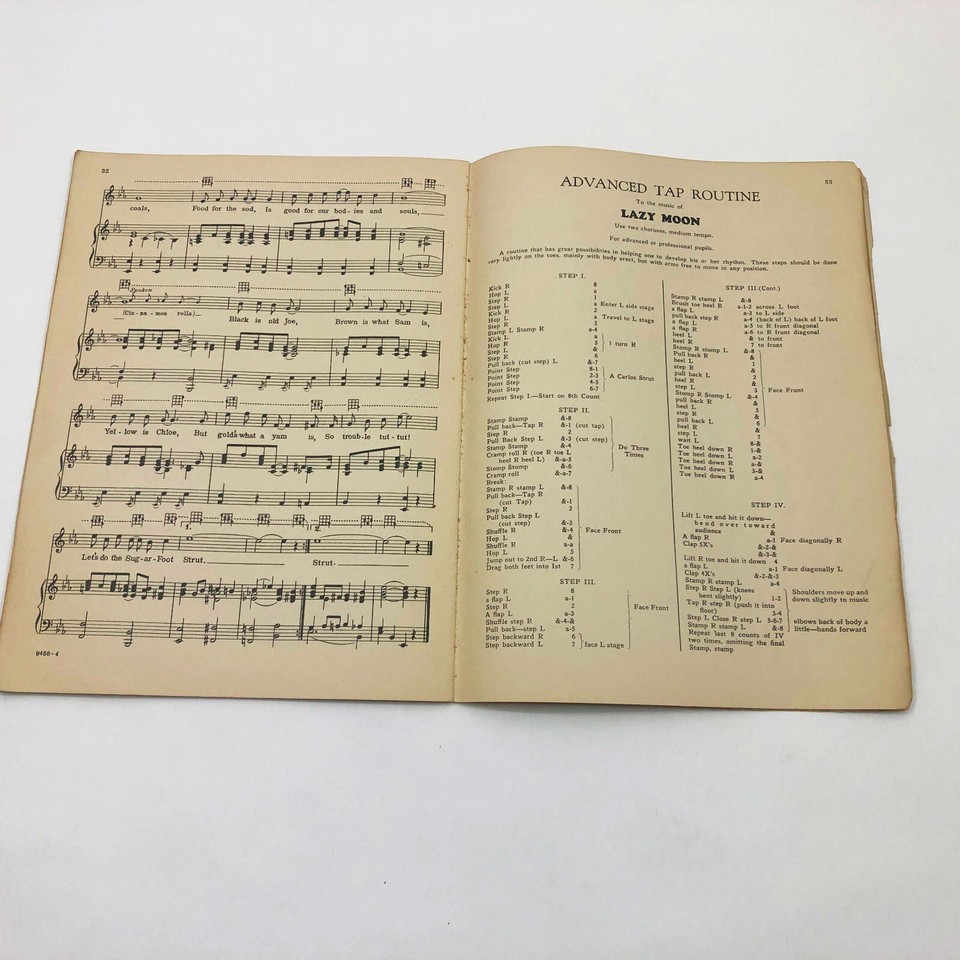 32
coals, Food for the sod, Is good for our bod-ies and souls,
Spoken
(Cin-na-mon rolls)
Black is old Joe, Brown is what Sam is,
Yel-low is Chloe, But gold's what a yam is, So troub-le tut-tut!
1. 2.
Let's do the Sug-ar-Foot Strut. Strut.
9456-4
33
ADVANCED TAP ROUTINE
To the music of
LAZY MOON
Use two choruses, medium tempo.
For advanced or professional pupils.
A routine that has great possibilities in helping one to develop his or her rhythm. These steps should be done
very lightly on the toes, mainly with body erect, but with arms free to move in any position.
STEP I.
Kick R 8
Hop L a
Step R 1
Step L a Enter L side stage
Kick R 2
Hop L a Travel to L stage
Step R 3
Stamp L Stamp R a-4
Kick L a
Hop R 5 } turn R
Step L &
Step R 6
Pull back (cut step) L &-7
Point Step 8-1
Point Step 2-3 A Carlos Strut
Point Step 4-5
Point Step 6-7
Repeat Step I.—Start on 8th Count
STEP II.
Stamp Stamp &-8
Pull back—Tap R &-1 (cut tap)
Step R 2
Pull Back Step L &-3 (cut step)
Stamp Stamp &-4 Do Three
Cramp roll R (toe R toe L Times
heel R heel L) &-a-5
Stomp Stomp &-6
Cramp roll &-a-7
Break:
Stamp R stamp L &-8
Pull back—Tap R
(cut Tap) &-1
Step R 2
Pull back Step L
(cut step) &-3
Shuffle R &-4 Face Front
Hop L &
Shuffle R a-a
Hop L 5
Jump out to 2nd R—L &-6
Drag both feet into 1st 7
STEP III.
Step R 8
a flap L a-1
Step R 2 Face Front
A flap L a-3
Shuffle step R &-4-&
Pull back—step L a-5
Step backward R 6
Step backward L 7 face L stage
STEP III.(Cont.)
Stamp R stamp L &-8
Brush toe heel R a-1-2 across L foot
a flap L a-3 to L side
pull back step R a-4 (back of L) back of L foot
a flap L a-5 to R front diagonal
a flap R a-6 to R front diagonal
heel L & to front
heel R 7 to front
Stomp R stomp L &-8
Pull back R &
heel L 1
step R &
pull back L 2
heel R &
step L 3 Face Front
Stomp R Stomp L &-4
pull back R &
heel L 5
step R &
pull back L 6
heel R &
step L 7
wait L 8-&
Toe heel down R 1-&
Toe heel down L a-2
Toe heel down R a-&
Toe heel down L 3-&
Toe heel down R a-4
STEP IV.
Lift L toe and hit it down—
bend over toward
audience &
A flap R a-1 Face diagonally R
Clap 5X's &-2-&
&-3-&
Lift R toe and hit it down 4
a flap L a-1 Face diagonally L
Clap 4X's &-2-&-3
Stamp R stamp L a-4
Step R Step L (knees Shoulders move up and
bent slightly) 1-2 down slightly to music
Tap R step R (push it into
floor) 3-4
Step L Close R step L 5-6-7 elbows back of body a
Stamp R stamp L &-8 little—hands forward
Repeat last 8 counts of IV
two times, omitting the final
Stamp, stamp